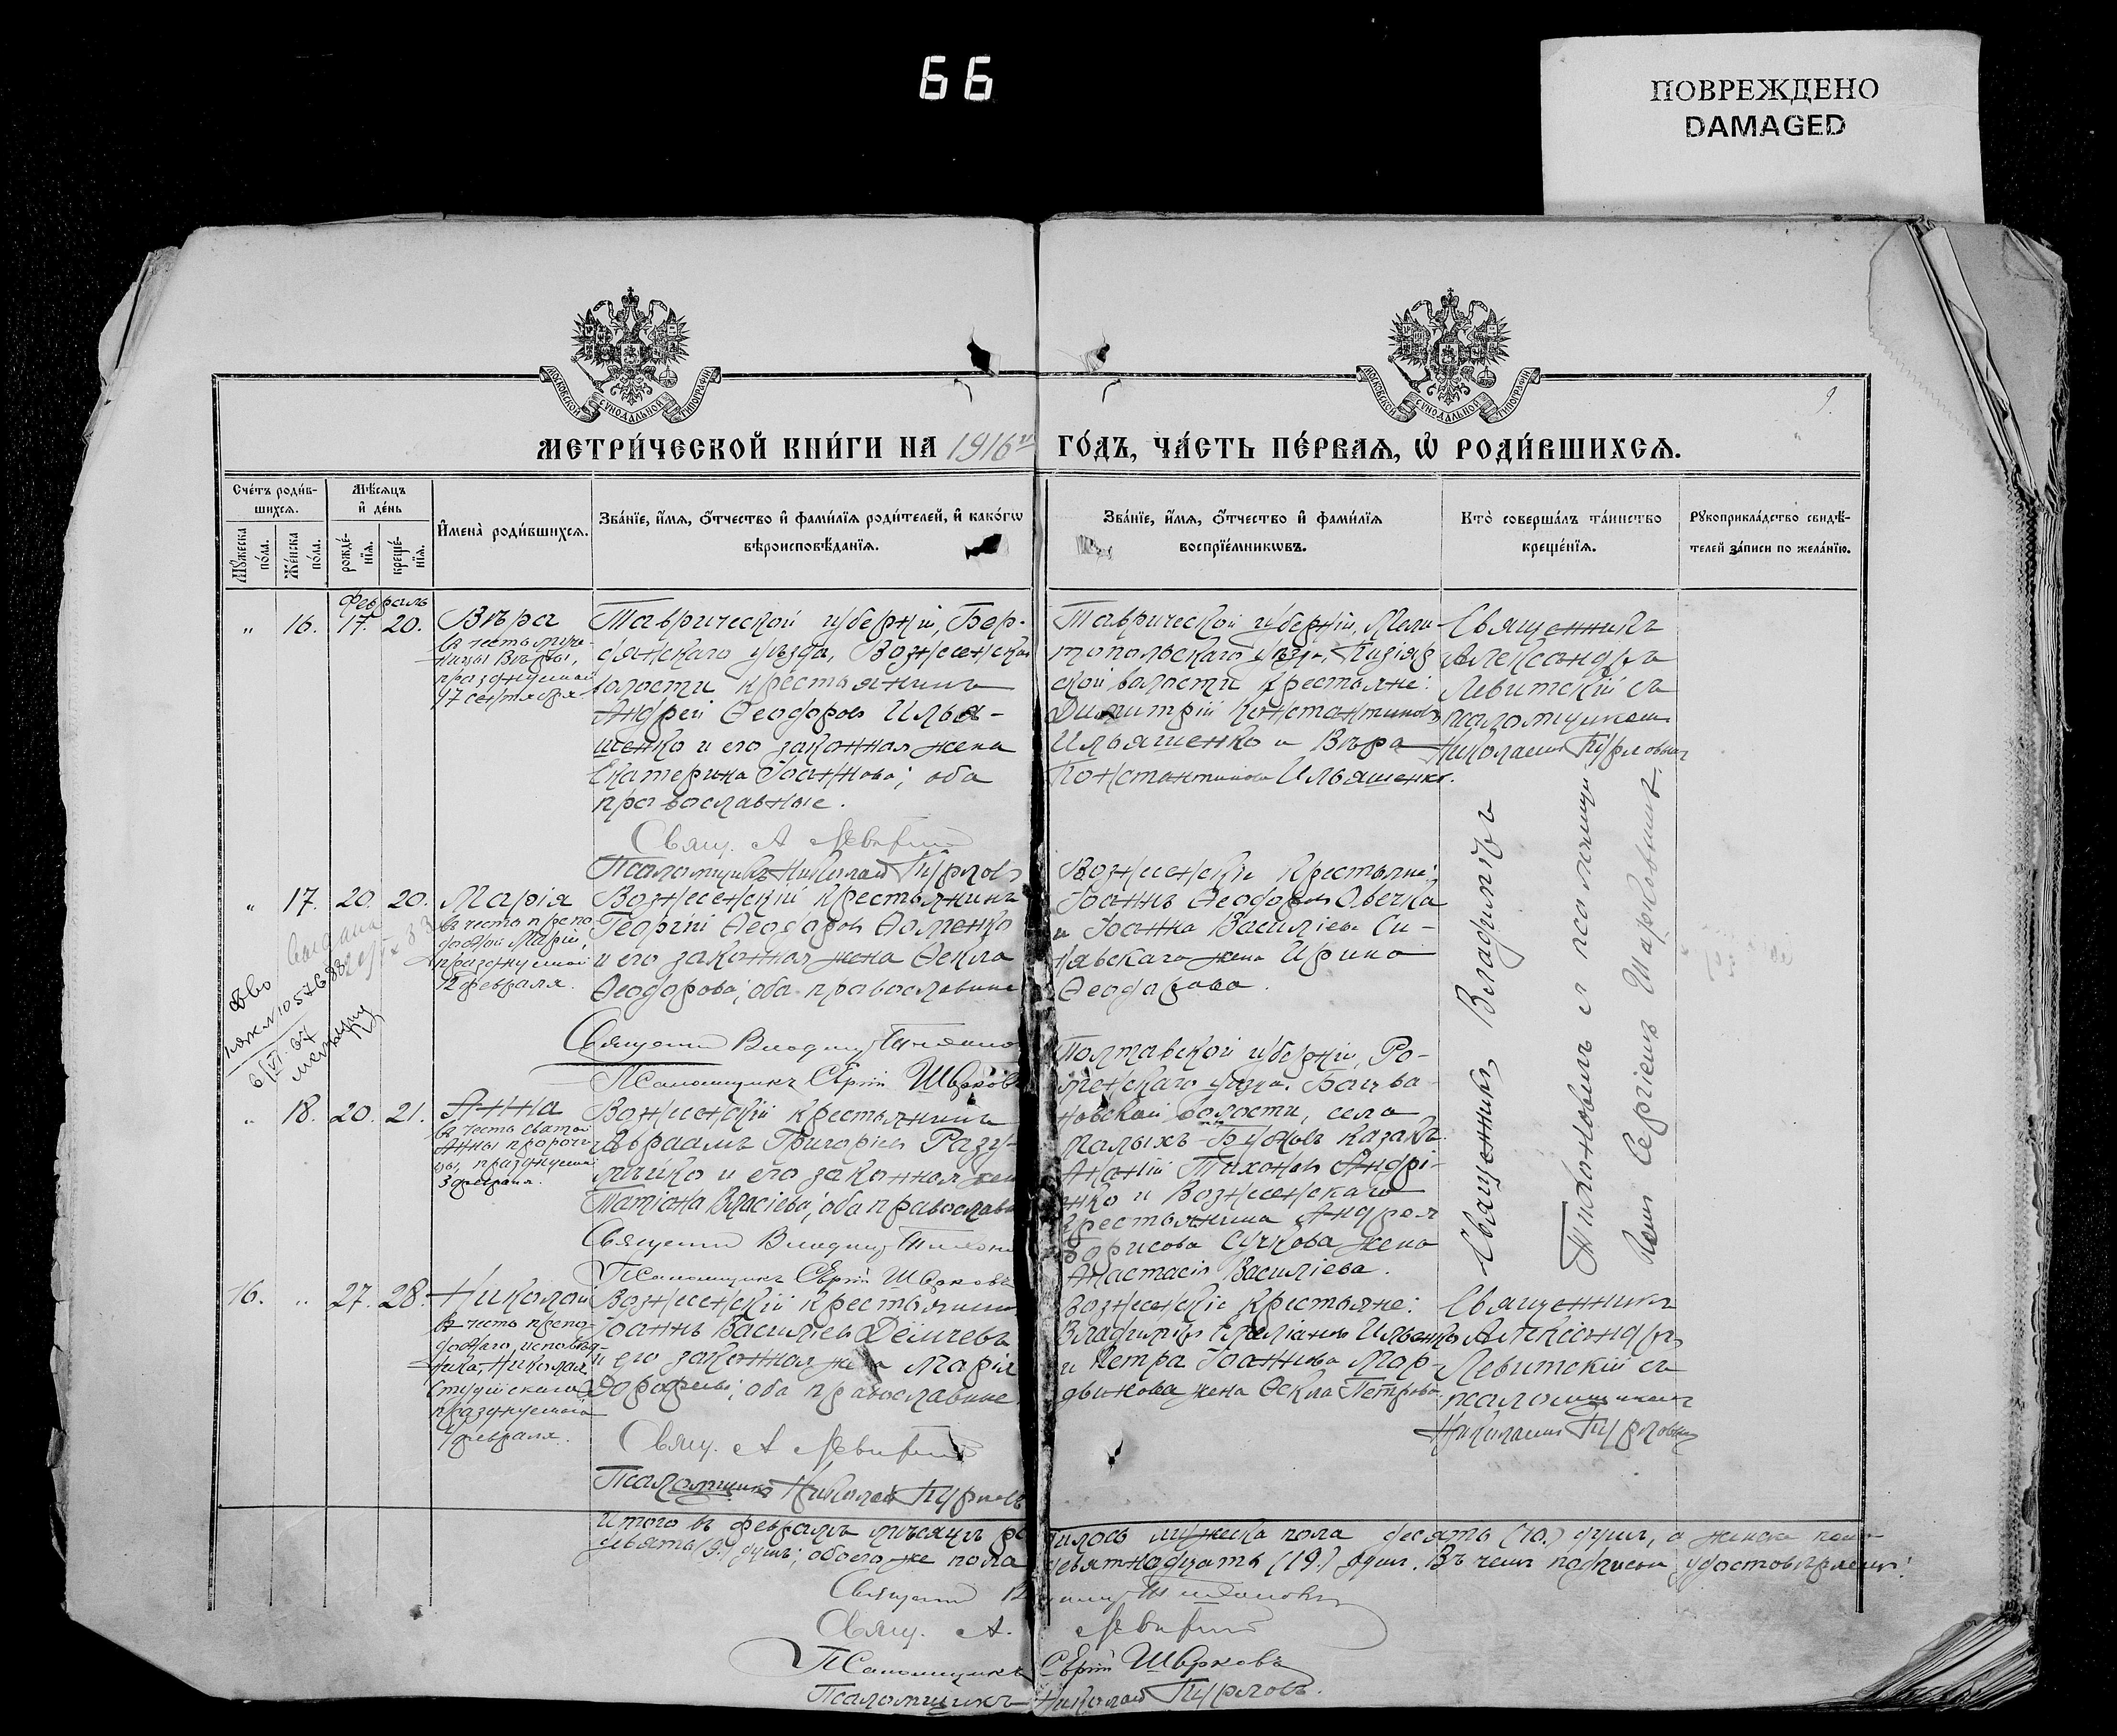 66
ПОВРЕЖДЕНО
DAMAGED
МОСКОВСКОЙ СѴНОДАЛЬНОЙ ТИПОГРАФІИ
МОСКОВСКОЙ СѴНОДАЛЬНОЙ ТИПОГРАФІИ
9.
МЕТРИ́ЧЕСКОЙ КНИ́ГИ НА 1916й ГО́ДЪ, ЧА́СТЬ ПЕ́РВАѦ, Ѽ РОДИ́ВШИХСѦ.
Сче́тъ роди́в-
шихсѧ.
Мꙋ́жеска по́ла.
Же́нска по́ла.
Мѣ́сѧцъ
и҆ де́нь
рожде́-
нїѧ.
креще́-
нїѧ.
И҆мена̀ роди́вшихсѧ.
Зва́нїе, и҆́мѧ, ѻ҆́тчество и҆ фами́лїѧ роди́телей, и҆ како́гѡ
вѣроисповѣ́данїѧ.
Зва́нїе, и҆́мѧ, ѻ҆́тчество и҆ фами́лїѧ
воспрїе́мникѡвъ.
Кто̀ соверша́лъ та́инство
креще́нїѧ.
Рꙋкоприкла́дство свидѣ́-
телей за́писи по жела́нїю.
Февраль
" 16. 17. 20.
Вѣра
въ честь муче-
ницы Вѣры,
празднуемой
17 сентября
Таврической губерніи, Бер-
дянскаго уѣзда, Вознесенской
волости крестьянинъ
Андрей Ѳеодоровъ Илья-
шенко и его законная жена
Екатерина Іоаннова; оба
православные.
Свящ. А Левитскій
Псаломщикъ Николай Турловъ
Таврической губерніи, Мели-
топольскаго уѣзда,
ской волости крестьяне:
Димитрій Константиновъ
Ильяшенко и Вѣра
Константинова Ильяшенко.
Священникъ
Александръ
Левитскій съ
псаломщикомъ
Николаемъ Турловымъ
" 17. 20. 20.
Марія
въ честь препо-
добной Маріи,
празднуемой
12 февраля.
Вознесенскій крестьянинъ
Георгій Ѳеодоровъ Ѳоменко
и его законная жена Ѳекла
Ѳеодорова; оба православные
Священн Владимір Тихонов
Псаломщикъ Сергій Шарковъ
Вознесенскіе крестьяне:
Іоаннъ Ѳеодоровъ Овечка
и Іоанна Василіева Си-
нявскаго жена Ирина
Ѳеодорова.
Священникъ Владиміръ
Тихоновичъ съ псаломщи-
комъ Сергіемъ Шарковымъ.
" 18. 20. 21.
Анна
въ честь святой
Анны пророчи-
цы, празднуемой
3 февраля.
Вознесенскій крестьянинъ
Авраамъ Григорьевъ Разу-
мейко и его законная жена
Татіана Власіева; оба православн
Священн Владимір Тихонов
Псаломщикъ Сергій Шарковъ
Полтавской губерніи, Ро-
менскаго уѣзда.
новской волости, села
Малыхъ Бубновъ казакъ
Ананій Тихоновъ Андрі-
енко и Вознесенскаго
крестьянина Андрея
Борисова Сучкова жена
Анастасія Василіева.
16. " 27. 28.
Николай
въ честь препо-
добнаго, исповѣд-
ника Николая
Студійскаго
празднуемаго
4 февраля.
Вознесенскій крестьянинъ
Іоаннъ Василіевъ Дейнчевъ
и его законная жена Марія
Дорофеева; оба православные
Свящ. А Левитскій
Псаломщикъ Николай Турловъ
Вознесенскіе крестьяне:
Владиміръ Емеліановъ Ильенко
и Петра Іоаннова Мор-
двинова жена Ѳекла Петрова
Священникъ
Александръ
Левитскій съ
псаломщикомъ
Николаемъ Турловымъ
Итого въ февралѣ мѣсяцѣ родилось мужеска пола десять (10.) душъ, а женска пола
девять (9.) душъ; обоего же пола девятнадцать (19.) душъ. Въ чемъ подписью удостовѣряемъ:
Священн Владимір Тихонович
Свящ. А. Левитскій
Псаломщикъ Сергій Шарковъ
Псаломщикъ Николай Турловъ.